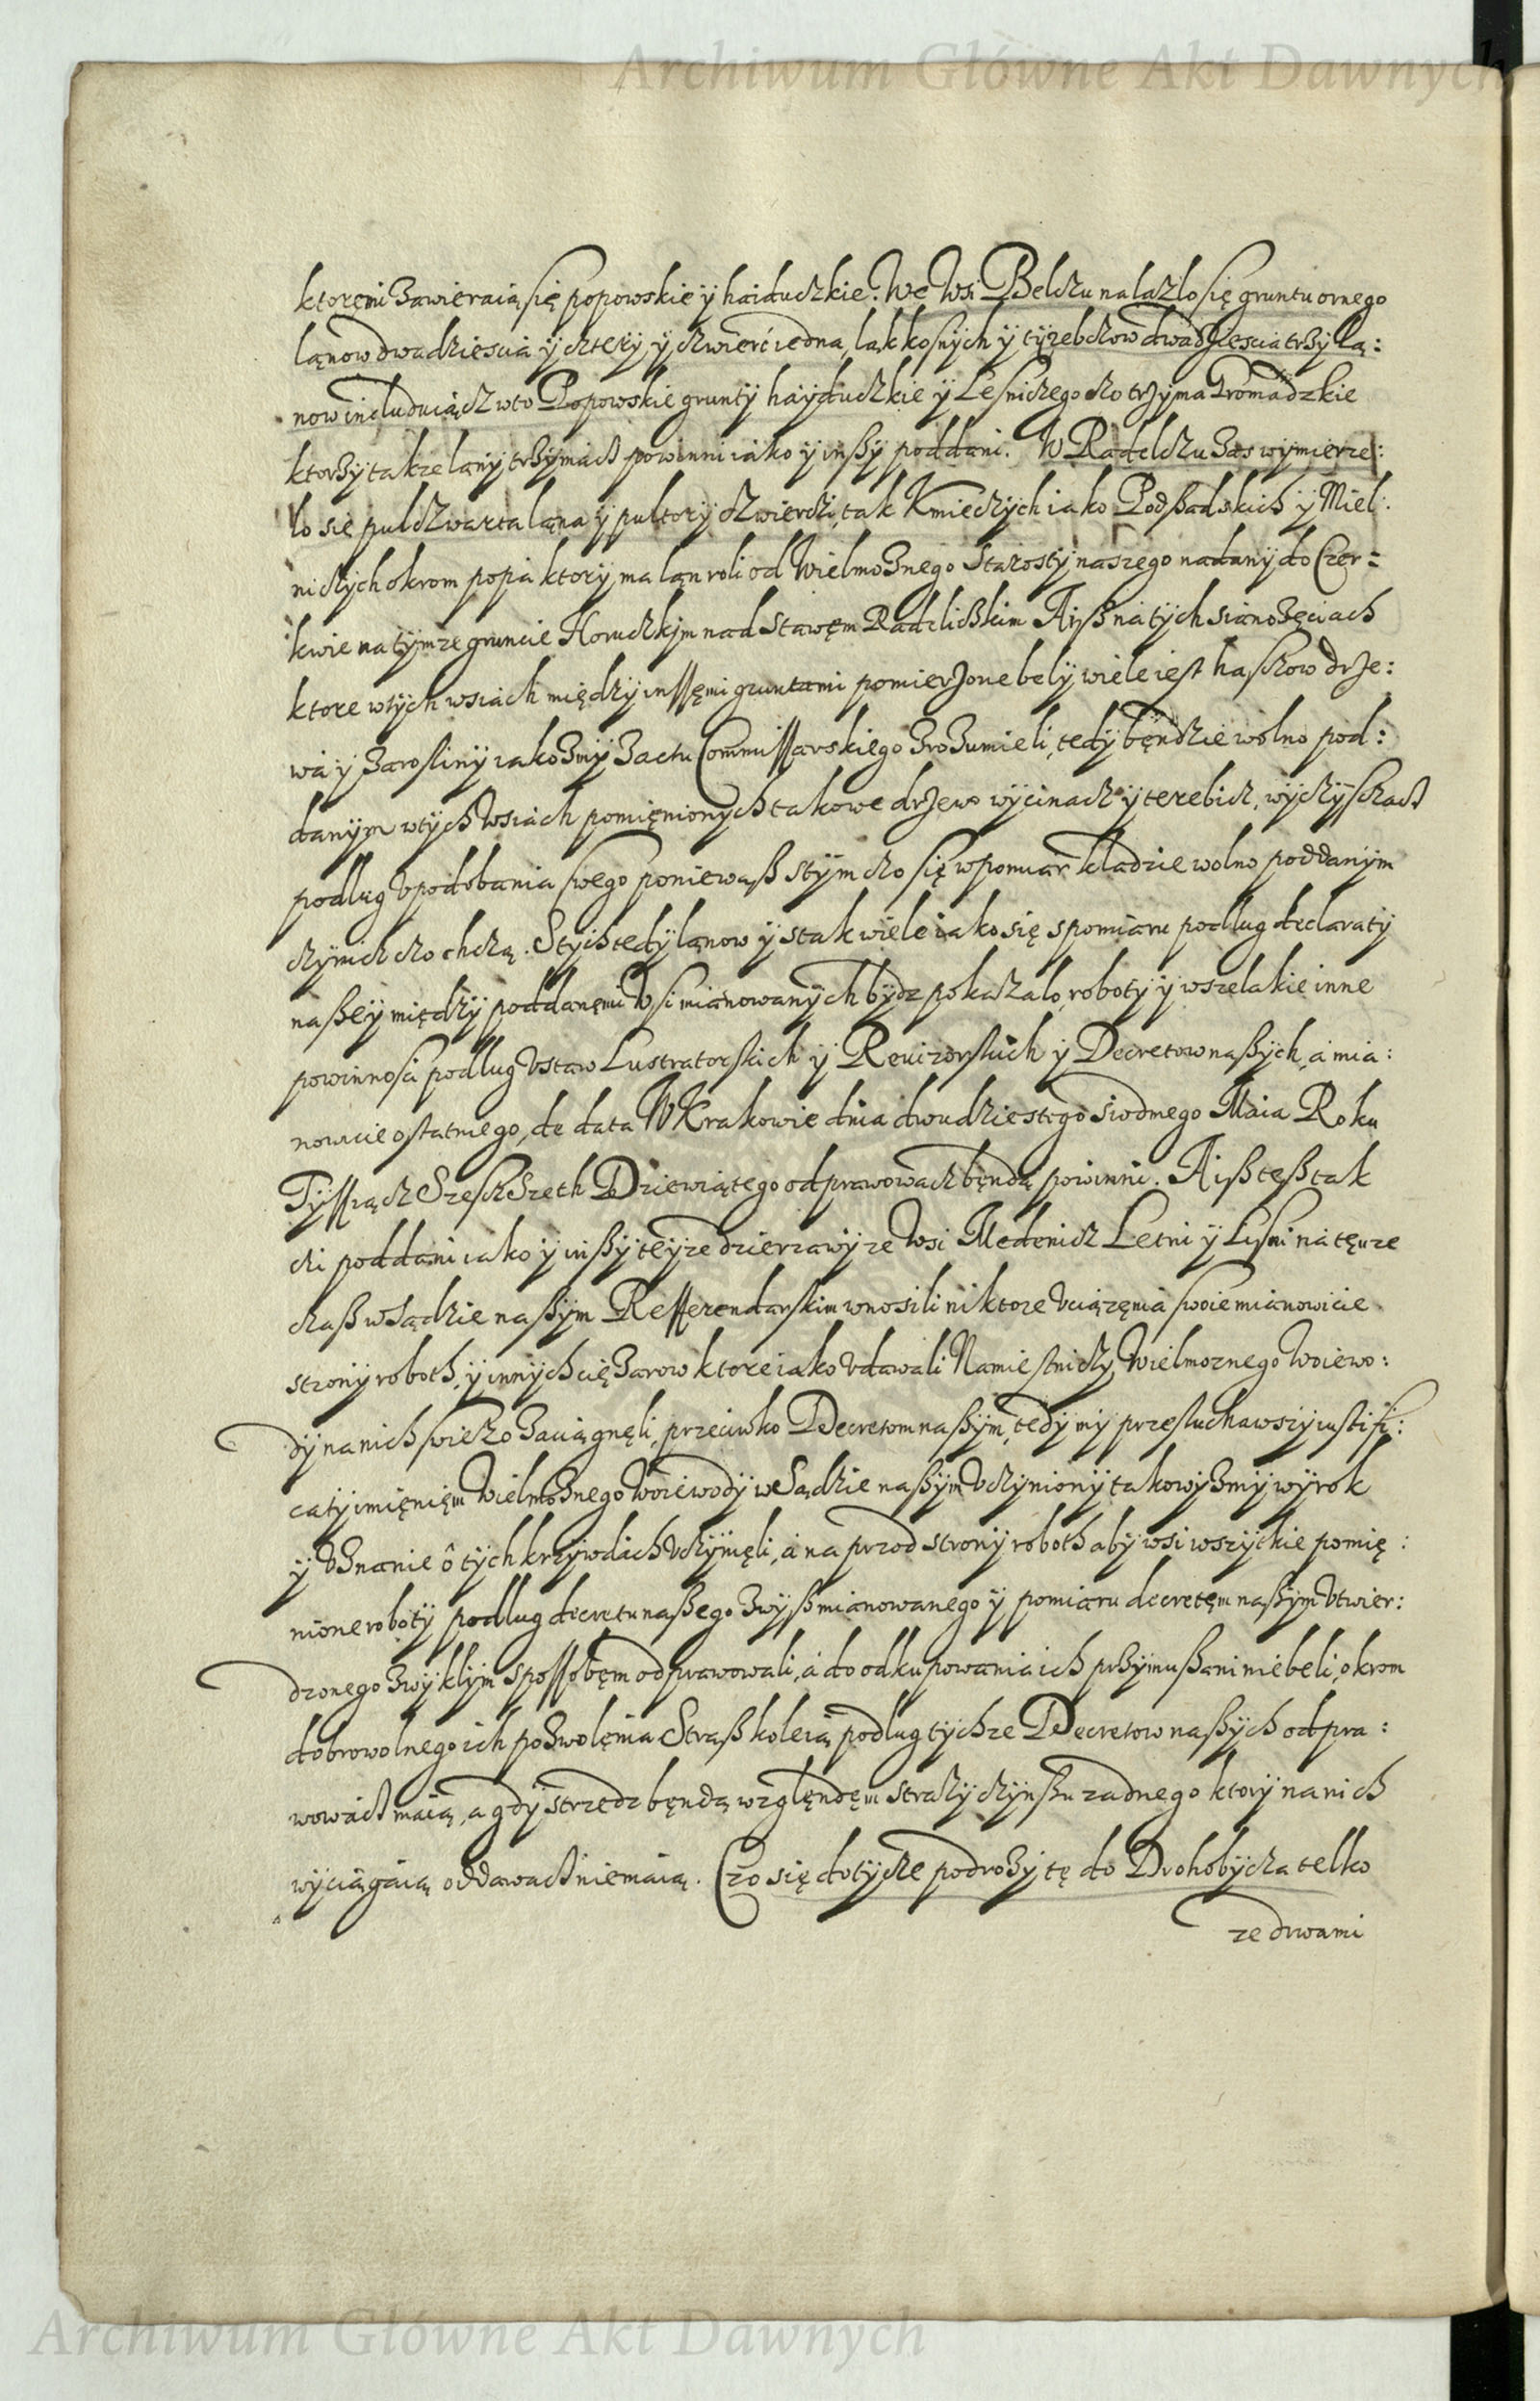 Archiwum Główne Akt Dawnych
ktoręmi zawieraią się popowskie ÿ haiduczkie. We Wsi Belczu nalazlo się gruntu ornego
lanow dwadziescia ÿ czterÿ ÿ czwierć iedna, lak kosnÿch ÿ tÿzebczow dwadziescia trzÿ La:
now includuiącz wto Popowskie gruntÿ haÿduczkie ÿ Lesniczego czo trzÿma Gromadzkie
ktorzÿ takze lanÿ trzÿmacz powinni iako ÿ inßÿ poddani. W Radelczu zas wÿmierze:
lo się pulczwarta lana ÿ pultorÿ czwierczi, tak Kmieczÿch iako Podßadskich ÿ Miel:
niczÿch okrom popa ktorÿ ma lan roli od Wielmoznego Starostÿ naszego nadanÿ do Czer=
kwie na tÿmze gruncie Horuczkim nad Stawęm Radeliczkim Aiß na tÿch sianożęciach
ktore wtÿch wsiach międzÿ inssęmi gruntami pomierzone belÿ wiele iest haszczow drze:
wa ÿ zaroslinÿ iako zmÿ z actu Commissarskiego zrozumieli, tedÿ będzie wolno pod:
danÿm wtÿch Wsiach pomięnionÿch takowe drzewo wÿcinacz ÿ terebicz, wÿczÿsczacz
podlug Vpodobania swego poniewaß stÿm czo się w pomiar kladzie wolno poddanÿm
czÿnicz czo chczą. Stÿch tedÿ lanow ÿ stak wiele iako się spomiaru podlug declaratÿ
naßeÿ międzÿ poddanęmi Wsi mianowanÿch bÿdz pokazalo, robotÿ ÿ wszelakie inne
powinnosci podlug Vstaw Lustratorskich ÿ Rewizorskich ÿ Decretow naßÿch, a mia:
nowicie ostatniego, de data W Krakowie dnia dwudziestego siodmego Maia Roku
Tÿssiącz Szesczseth Dziewiątego odprawowacz będą powinni. Aiß teß tak
czi poddani iako ÿ inßÿ teÿze dzierzawÿ ze Wsi Medenicz Letni ÿ Lisni na tęnze
czaß w Sądzie naßÿm Refferendarskim wnosili niktore Vciązęnia swoie mianowicie
stronÿ roboth, ÿ innÿch ciężarow ktore iako Vdawali Namiestniczÿ Wielmoznego Woiewo:
dÿ na nich swiezo zaciągnęli, przeciwko Decretom naßÿm, tedÿ mÿ przesluchawszÿ iustifi:
catÿ imięnięm Wielmoznego Woiewodÿ we Sądzie naßÿm Vczÿnionÿ takowÿ zmÿ wÿrok
ÿ Vznanie o tÿch krzÿwdach Vczÿnięli, a na przod stronÿ roboth abÿ wsi wszÿtkie pomię:
nione robotÿ podlug decretu naßego zwÿß mianowanego ÿ pomiaru decretęm naßÿm Vtwier:
dzonego zwÿklÿm spossobęm odprawowali, a do odkupowania ich przÿmußani niebeli, okrom
dobrowolnego ich pozwolęnia Straß koleią podlug tÿchze Decretow naßÿch odpra:
wowacz maią, a gdÿ strzedz będą względęm strazÿ czÿnßu zadnego ktorÿ na nich
wÿciągaią oddawacz niemaią. Czo się dotÿcze podrozÿ tę do Drohobÿcza telko
ze drwami
Archiwum Główne Akt Dawnych